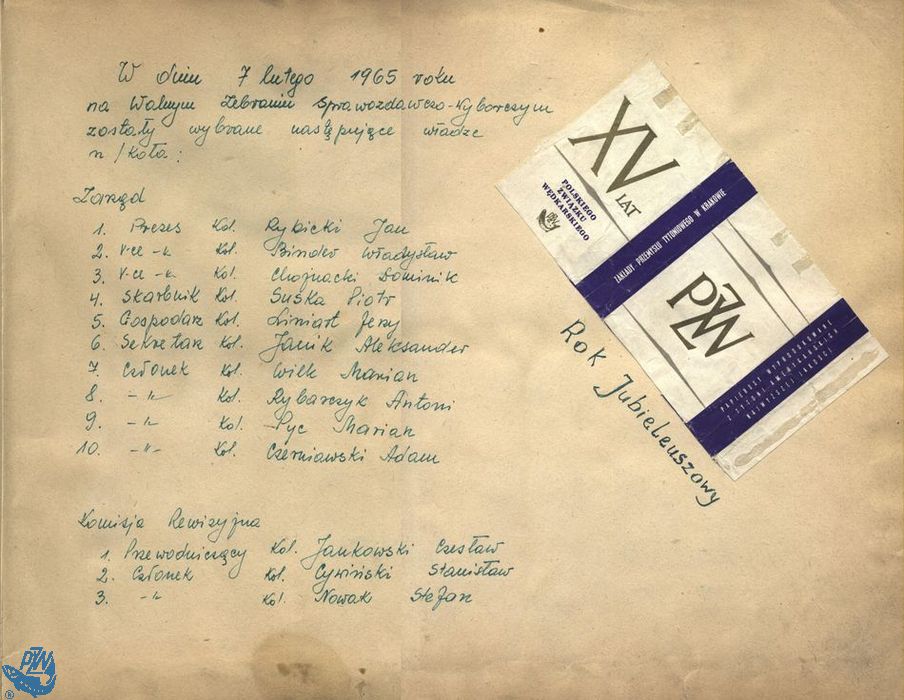 W dniu 7 lutego 1965 roku
na Walnym Zebraniu Sprawozdawczo-Wyborczym
zostały wybrane następujące władze
n/Koła:
Zarząd
1. Prezes Kol. Rybicki Jan
2. V-ce -"- Kol. Binder Władysław
3. V-ce -"- Kol. Chojnacki Dominik
4. Skarbnik Kol. Suska Piotr
5. Gospodarz Kol. Liniart Jerzy
6. Sekretarz Kol. Janik Aleksander
7. Członek Kol. Wilk Marian
8. -"- Kol. Rybarczyk Antoni
9. -"- Kol. Pyc Marian
10. -"- Kol. Czerniawski Adam
Komisja Rewizyjna
1. Przewodniczący Kol. Jankowski Czesław
2. Członek Kol. Cywiński Stanisław
3. -"- Kol. Nowak Stefan
XV
LAT
POLSKIEGO
ZWIĄZKU
WĘDKARSKIEGO
ZAKŁADY PRZEMYSŁU TYTONIOWEGO W KRAKOWIE
PZW
PAPIEROSY WYPRODUKOWANE
NAJWYŻSZEJ JAKOŚCI
Rok Jubileuszowy
PZW
®